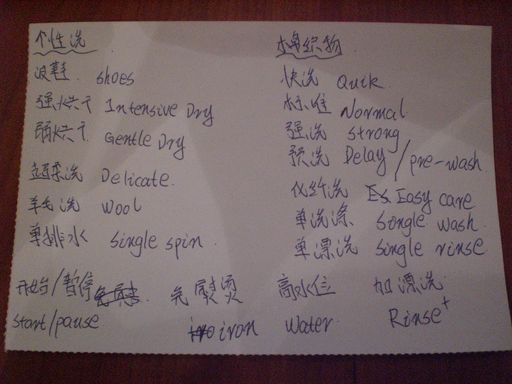 个性洗
波鞋. shoes
强烘干 Intensive Dry
弱烘干. Gentle Dry
超柔洗 Delicate.
羊毛洗 Wool
单排水 single spin.
棉织物.
快洗 Quick.
标准 Normal
强洗 strong
预洗 Delay/pre-wash
化纤洗 Easy care
单洗涤 Single wash.
单漂洗 single rinse
开始/暂停 免熨烫 高水位 加漂洗
start/pause iron Water Rinse+